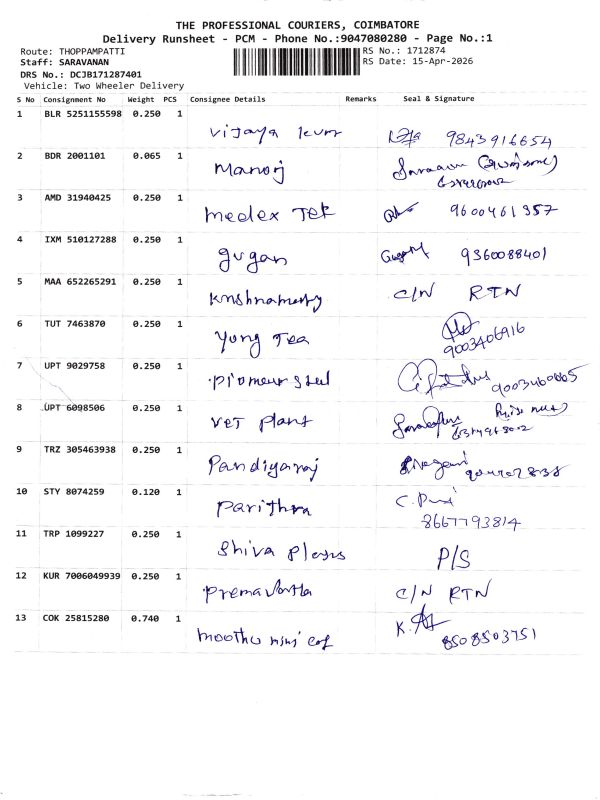 THE PROFESSIONAL COURIERS, COIMBATORE
Delivery Runsheet - PCM - Phone No.:9047080280 - Page No.:1
Route: THOPPAMPATTI RS No.: 1712874
Staff: SARAVANAN RS Date: 15-Apr-2026
DRS No.: DCJB171287401
Vehicle: Two Wheeler Delivery
S No Consignment No Weight PCS Consignee Details Remarks Seal & Signature
1 BLR 5251155598 0.250 1
vijaya 9843916654
2 BDR 2001101 0.065 1
manoj
3 AMD 31940425 0.250 1
medex Tek 9600461357
4 IXM 510127288 0.250 1
gugan 9360088401
5 MAA 652265291 0.250 1
C/N RTN
6 TUT 7463870 0.250 1
yung Tea 9003406916
7 UPT 9029758 0.250 1
8 UPT 6098506 0.250 1
vet plant
9 TRZ 305463938 0.250 1
Pandiyaraj
10 STY 8074259 0.120 1
Parithra 8667793814
11 TRP 1099227 0.250 1
Shiva P/S
12 KUR 7006049939 0.250 1
C/N RTN
13 COK 25815280 0.740 1
moothu mini 8508503751